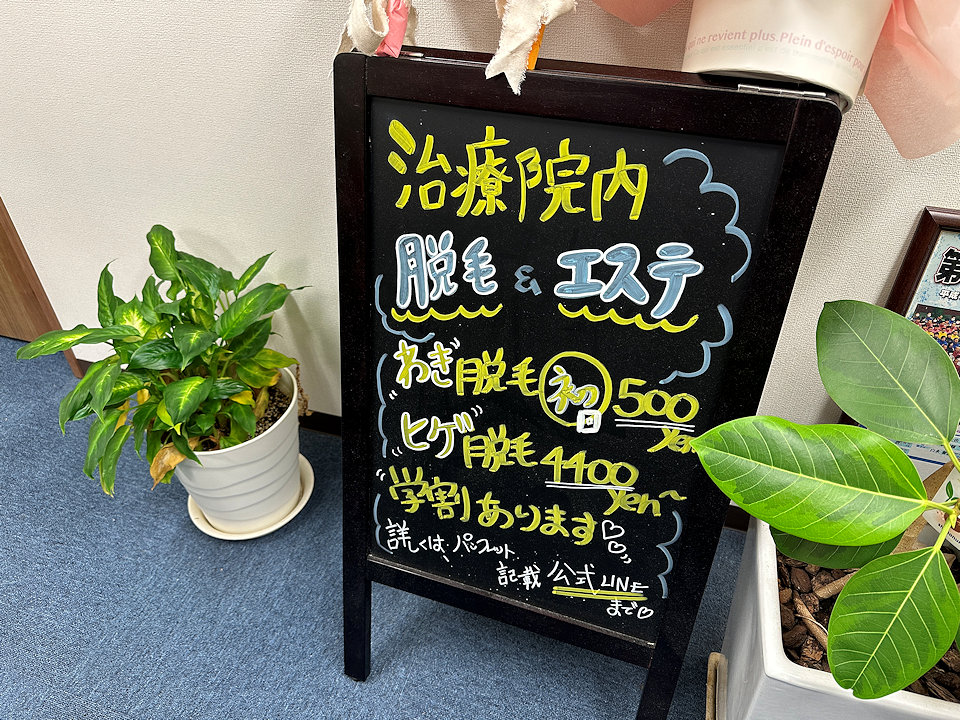 ne revient plus. Plein d'espoir
治療院内
脱毛 & エステ
"わき"脱毛 初回 500 yen
"ヒゲ"脱毛 4400 yen~
"学割あります♡♡"
詳しくは、パンフレット
記載 公式LINE
まで♡
第